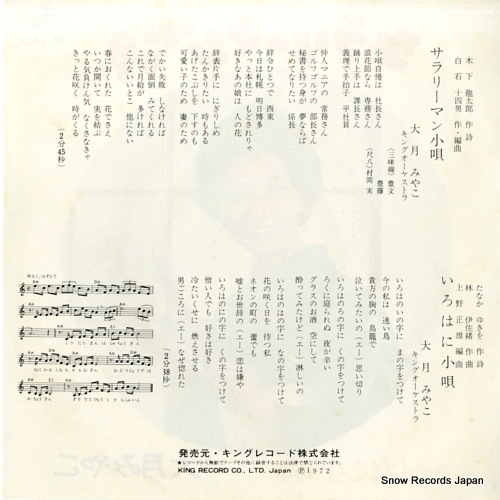 木下龍太郎 作詩
白石十四男 作・編曲
サラリーマン小唄
大月みやこ
キングオーケストラ
(三味線) 豊文
豊藤
(尺八) 村岡 実
小唄自慢は 社長さん
浪花節なら 専務さん
踊り上手は 課長さん
義理で手拍子 平社員
仲人マニアの 常務さん
ゴルフゴルフの 部長さん
秘書を持つ身が 夢ならば
せめてなりたい 係長
辞令ひとつで 西東
今日は札幌 明日博多
やっと本社に もどされりゃ
好きなあの娘は 人の花
辞表片手に にぎりしめ
たんかきりたい 時もある
あげたこぶしを 下すのも
可愛い子のため 妻のため
でかい失敗 しなければ
ながく面倒 みてくれる
これで月給が 多ければ
こんないいとこ 他にない
春におくれた 花でさえ
いつか開いて 実を結ぶ
やる気負けん気 なくさなきゃ
きっと花咲く 時がくる
(2分45秒)
たなかゆきを 作詩
林 伊佐緒 作曲
上野正雄 編曲
いろはに小唄
大月みやこ
キングオーケストラ
いろはのいの字に まの字をつけて
今の私は 迷い鳥
貴方の胸の 鳥籠で
泣いてみたいの(エー)思い切り
いろはのろの字に くの字をつけて
ろくに寝られぬ 夜が辛い
グラスのお酒 空にして
酔ってみたけど(エー)淋しいの
いろはのはの字に なの字をつけて
花の咲く日を 待つ私
ネオンの町の 蕾でも
嘘とお世辞の(エー)恋は嫌や
いろはのにの字に くの字をつけて
憎い人でも 好きは好き
冷たいくせに 燃えさせる
男ごころに(エー)なぜ惚れた
(2分38秒)
明るく、はずんで
発売元・キングレコード株式会社
★レコードから無断でテープその他に録音することは法律で禁じられています。
KING RECORD CO., LTD. Japan Ⓟ1972
Snow Records Japan